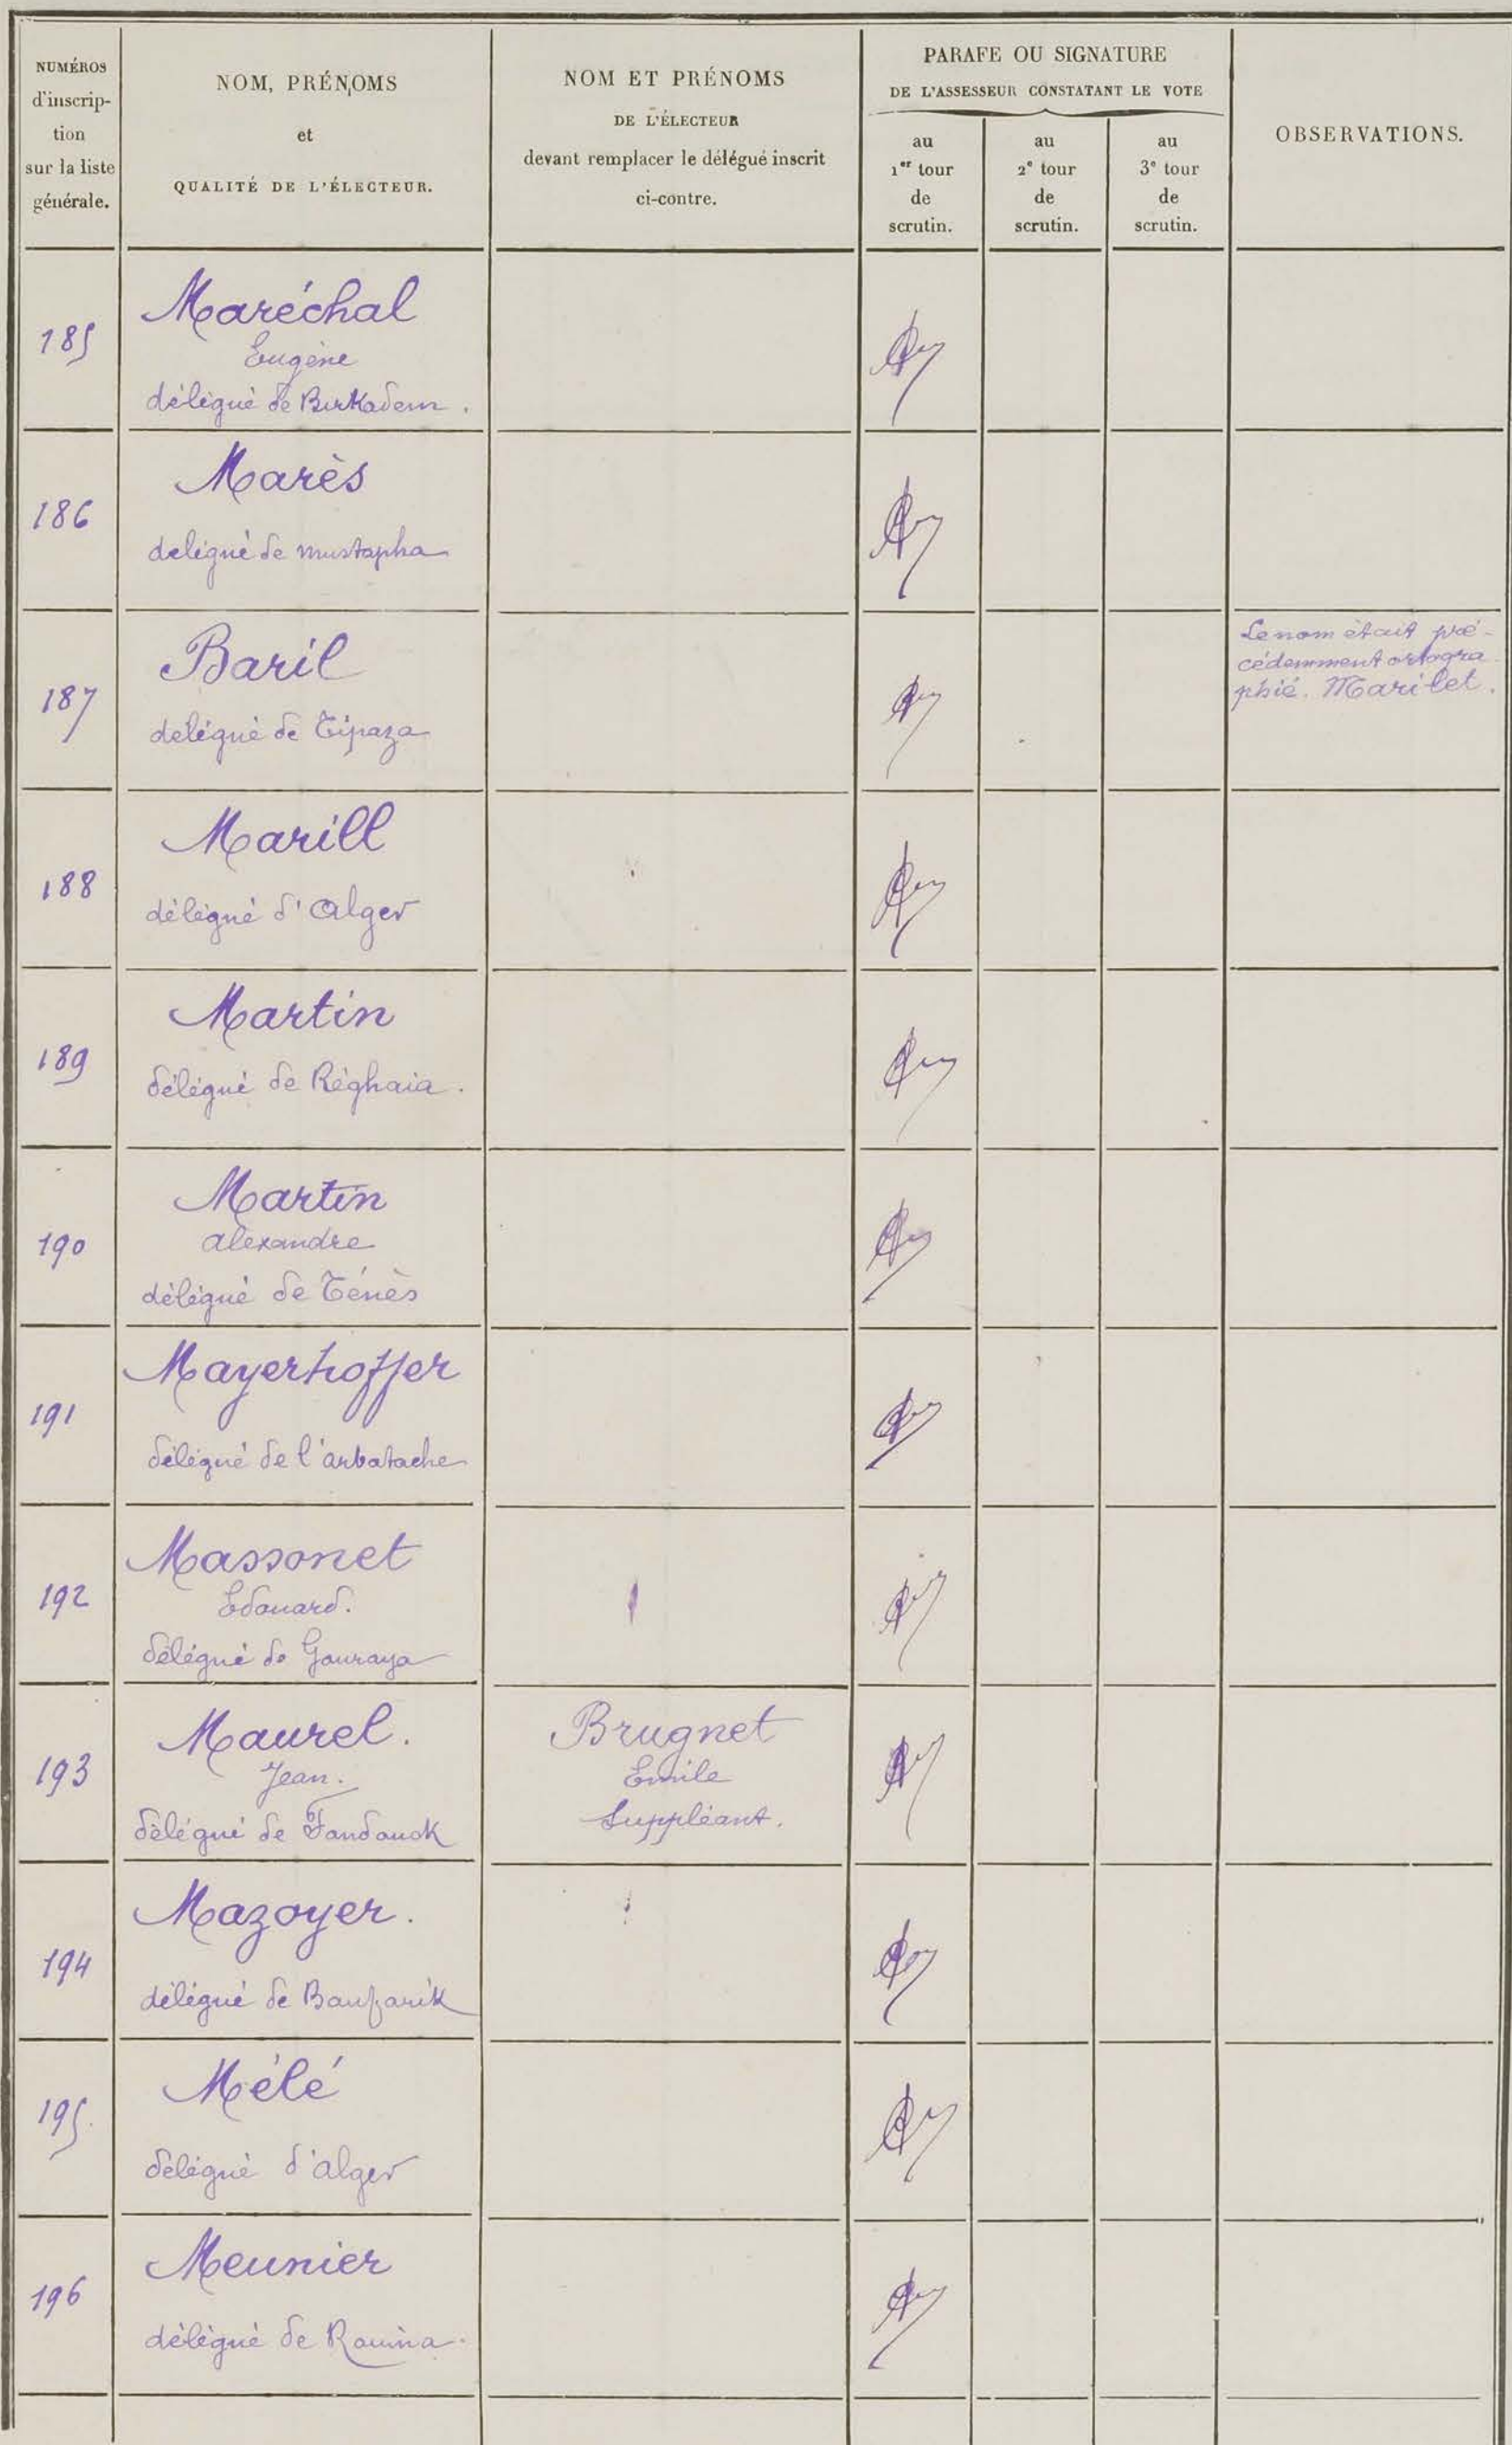 NUMÉROS
d'inscrip-
tion
sur la liste
générale.
NOM, PRÉNOMS
et
QUALITÉ DE L'ÉLECTEUR.
NOM ET PRÉNOMS
DE L'ÉLECTEUR
devant remplacer le délégué inscrit
ci-contre.
PARAFE OU SIGNATURE
DE L'ASSESSEUR CONSTATANT LE VOTE
au
1er tour
de
scrutin.
au
2e tour
de
scrutin.
au
3e tour
de
scrutin.
OBSERVATIONS.
185
Maréchal
Eugène
délégué de Birkadem.
186
Marès
délégué de mustapha
187
Baril
délégué de Tipaza
Le nom était pré-
cédemment ortogra
phié. Marilet.
188
Marill
délégué d'Alger
189
Martin
délégué de Réghaia.
190
Martin
alexandre
délégué de Ténès
191
Mayerhoffer
délégué de l'arbatache
192
Massonet
Edouard.
délégué de Gouraya
193
Maurel.
Jean.
délégué de Fondouck
Brugnet
Emile
Suppléant.
194
Mazoyer.
délégué de Boufarik
195.
Mélé
délégué d'alger
196
Meunier
délégué de Rouina.